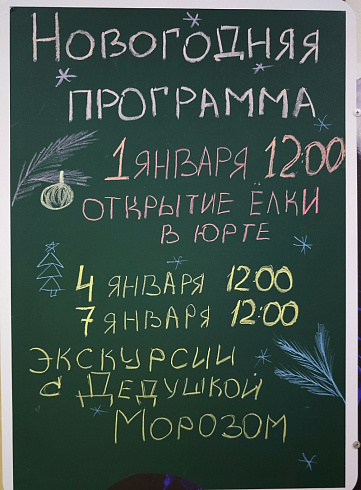 НОВОГОДНЯЯ
ПРОГРАММА
1 ЯНВАРЯ 12:00
ОТКРЫТИЕ ЁЛКИ
В ЮРТЕ
4 ЯНВАРЯ 12:00
7 ЯНВАРЯ 12:00
ЭКСКУРСИИ
С ДЕДУШКОЙ
МОРОЗОМ